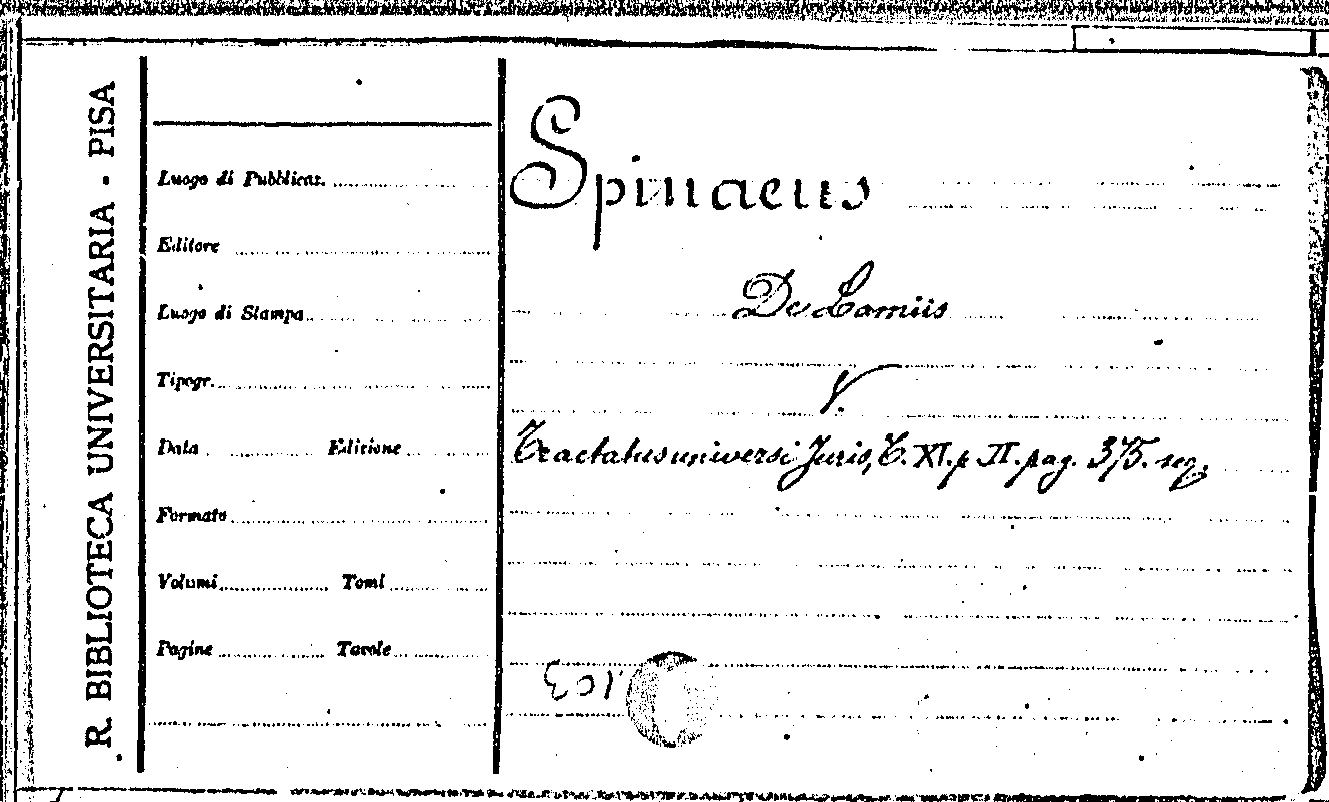 R. BIBLIOTECA UNIVERSITARIA - PISA
Luogo di Pubblicaz.
Editore
Luogo di Stampa
Tipogr.
Data Edizione
Formato
Volumi Tomi
Pagine Tavole
Spinaeus
De Lamiis
V.
Tractatus universi Juris, T. XI. p II. pag. 375. seq.
103